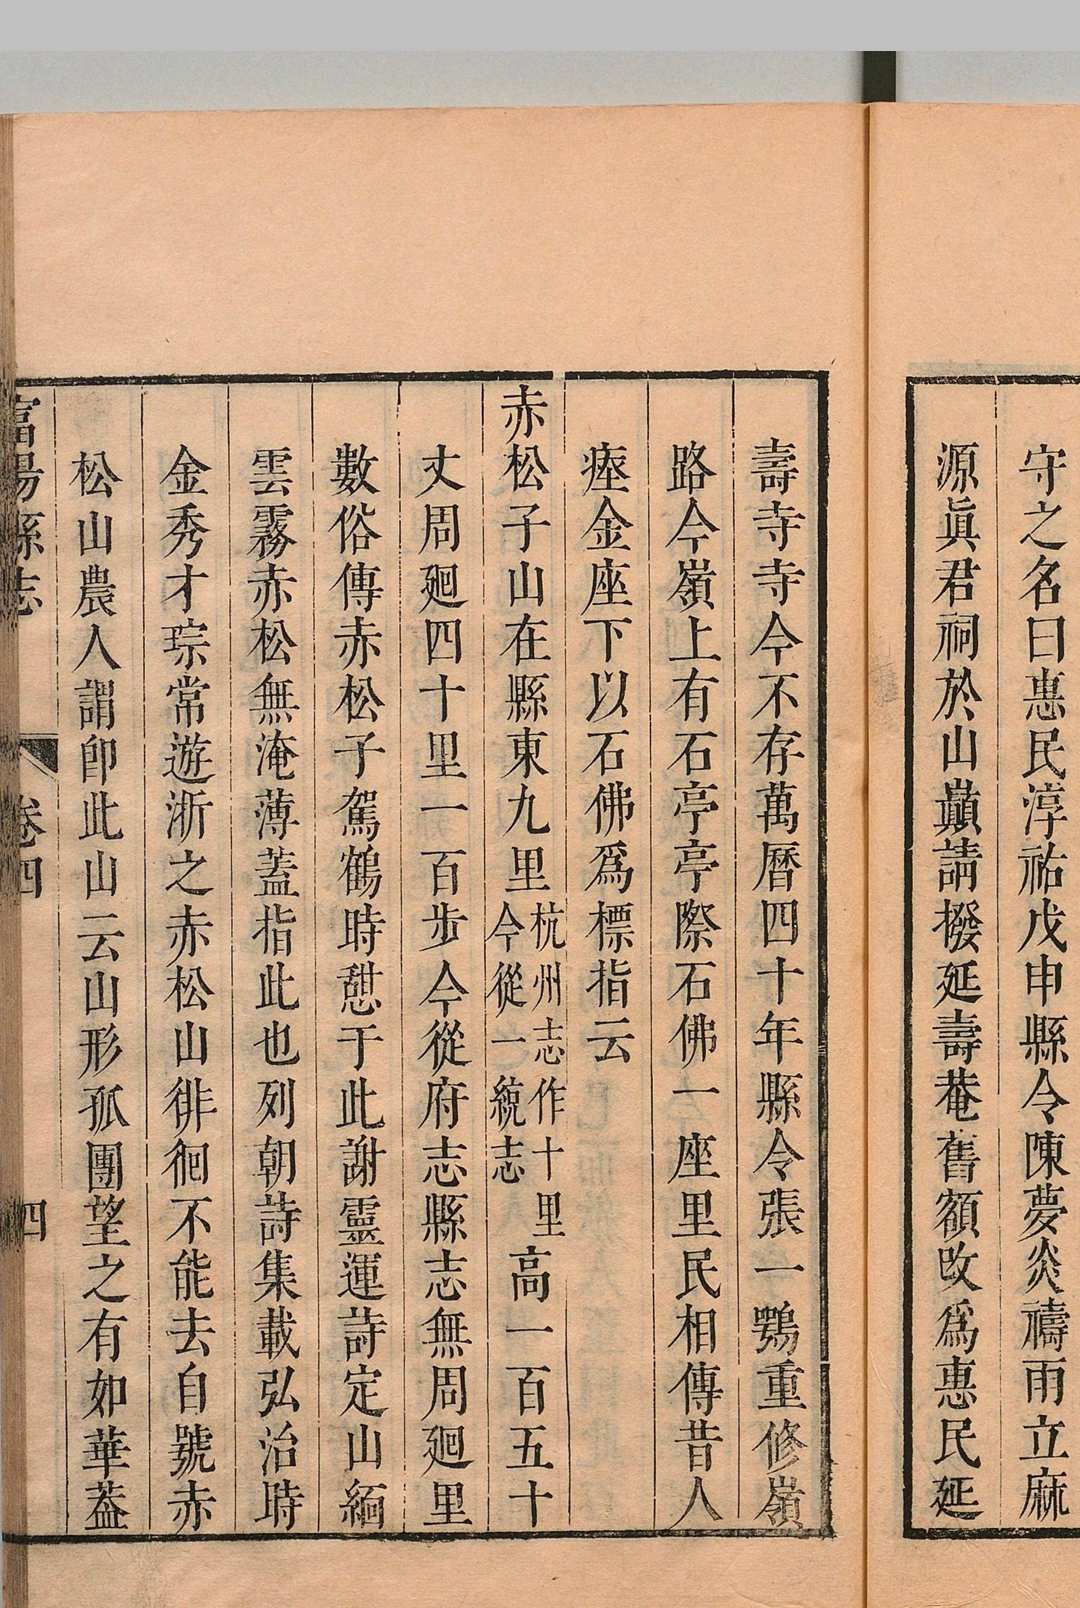 守之名曰惠民淳祐戊申縣令陳夢炎禱雨立麻
源眞君祠於山巔請撥延壽菴舊額改爲惠民延
壽寺寺今不存萬曆四十年縣令張一鶚重修嶺
路今嶺上有石亭亭際石佛一座里民相傳昔人
瘞金座下以石佛爲標指云
赤松子山在縣東九里杭州志作十里今從一統志高一百五十
丈周廻四十里一百步今從府志縣志無周廻里
數俗傳赤松子駕鶴時憇于此謝靈運詩定山緬
雲霧赤松無淹薄蓋指此也列朝詩集載弘治時
金秀才琮常遊浙之赤松山徘徊不能去自號赤
松山農人謂卽此山云山形孤團望之有如華葢
富陽縣志 卷四 四